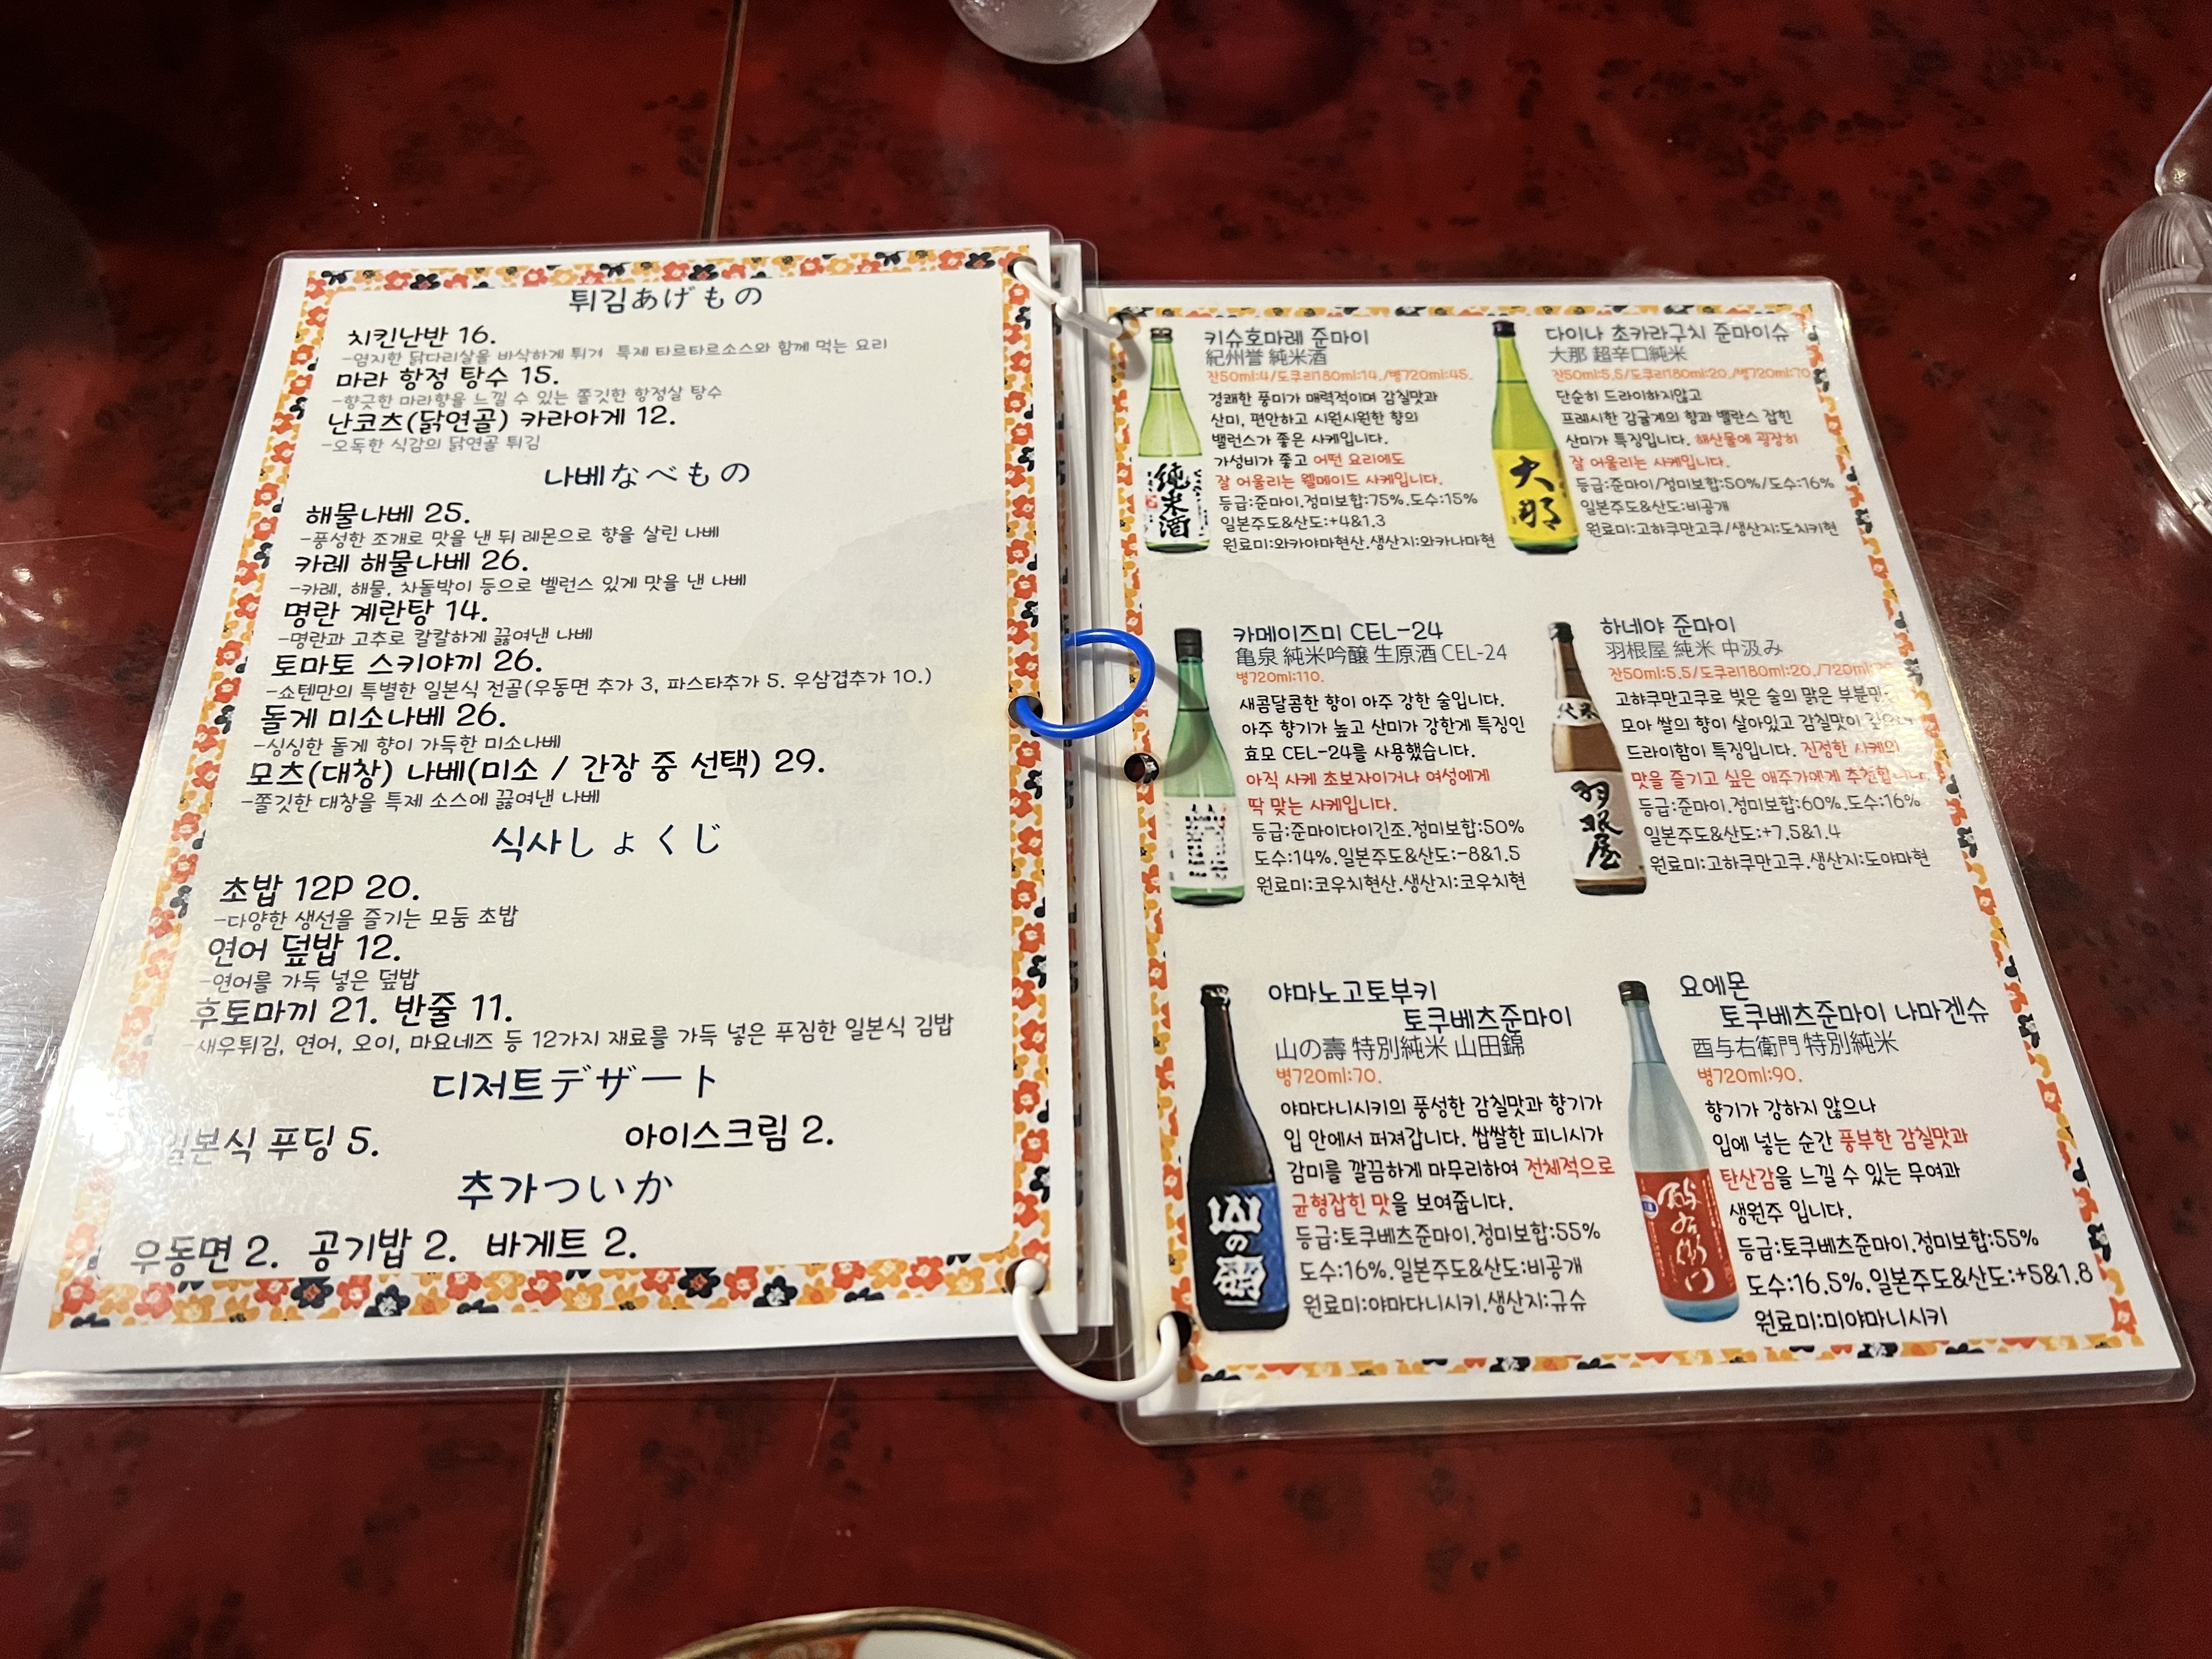 튀김あげもの
치킨난반 16.
-염지한 닭다리살을 바삭하게 튀겨 특제 타르타르소스와 함께 먹는 요리
마라 항정 탕수 15.
-향긋한 마라향을 느낄 수 있는 쫄깃한 항정살 탕수
난코츠(닭연골) 카라아게 12.
-오독한 식감의 닭연골 튀김
나베なべもの
해물나베 25.
-풍성한 조개로 맛을 낸 뒤 레몬으로 향을 살린 나베
카레 해물나베 26.
-카레, 해물, 차돌박이 등으로 벨런스 있게 맛을 낸 나베
명란 계란탕 14.
-명란과 고추로 칼칼하게 끓여낸 나베
토마토 스키야끼 26.
-쇼텐만의 특별한 일본식 전골(우동면 추가 3, 파스타추가 5. 우삼겹추가 10.)
돌게 미소나베 26.
-싱싱한 돌게 향이 가득한 미소나베
모츠(대창) 나베(미소 / 간장 중 선택) 29.
-쫄깃한 대창을 특제 소스에 끓여낸 나베
식사しょくじ
초밥 12P 20.
-다양한 생선을 즐기는 모둠 초밥
연어 덮밥 12.
-연어를 가득 넣은 덮밥
후토마끼 21. 반줄 11.
-새우튀김, 연어, 오이, 마요네즈 등 12가지 재료를 가득 넣은 푸짐한 일본식 김밥
디저트デザート
일본식 푸딩 5. 아이스크림 2.
추가ついか
우동면 2. 공기밥 2. 바게트 2.
키슈호마레 준마이
紀州誉 純米酒
잔50ml:4/도쿠리180ml:14./병720ml:45.
경쾌한 풍미가 매력적이며 감칠맛과
산미, 편안하고 시원시원한 향의
밸런스가 좋은 사케입니다.
가성비가 좋고 어떤 요리에도
잘 어울리는 웰메이드 사케입니다.
등급:준마이.정미보합:75%.도수:15%
일본주도&산도:+4&1.3
원료미:와카야마현산.생산지:와카나마현
純米酒
다이나 초카라구치 준마이슈
大那 超辛口純米
잔50ml:5.5/도쿠리180ml:20./병720ml:70
단순히 드라이하지않고
프레시한 감귤계의 향과 밸런스 잡힌
산미가 특징입니다. 해산물에 굉장히
잘 어울리는 사케입니다.
등급:준마이/정미보합:50%/도수:16%
일본주도&산도:비공개
원료미:고하쿠만고쿠/생산지:도치키현
大那
카메이즈미 CEL-24
亀泉 純米吟醸 生原酒 CEL-24
병720ml:110.
새콤달콤한 향이 아주 강한 술입니다.
아주 향기가 높고 산미가 강한게 특징인
효모 CEL-24를 사용했습니다.
아직 사케 초보자이거나 여성에게
딱 맞는 사케입니다.
등급:준마이다이긴조.정미보합:50%
도수:14%.일본주도&산도:-8&1.5
원료미:코우치현산.생산지:코우치현
하네야 준마이
羽根屋 純米 中汲み
잔50ml:5.5/도쿠리180ml:20./720ml:
고햐쿠만고쿠로 빚은 술의 맑은 부분만
모아 쌀의 향이 살아있고 감칠맛이
드라이함이 특징입니다. 진정한 사케의
맛을 즐기고 싶은 애주가에게 추천합니다.
등급:준마이.정미보합:60%.도수:16%
일본주도&산도:+7.5&1.4
원료미:고하쿠만고쿠.생산지:도야마현
羽根屋
야마노고토부키
토쿠베츠준마이
山の壽 特別純米 山田錦
병720ml:70.
야마다니시키의 풍성한 감칠맛과 향기가
입 안에서 퍼져갑니다. 쌉쌀한 피니시가
감미를 깔끔하게 마무리하여 전체적으로
균형잡힌 맛을 보여줍니다.
등급:토쿠베츠준마이.정미보합:55%
도수:16%.일본주도&산도:비공개
원료미:야마다니시키.생산지:규슈
山の壽
요에몬
토쿠베츠준마이 나마겐슈
酉与右衛門 特別純米
병720ml:90.
향기가 강하지 않으나
입에 넣는 순간 풍부한 감칠맛과
탄산감을 느낄 수 있는 무여과
생원주 입니다.
등급:토쿠베츠준마이.정미보합:55%
도수:16.5%.일본주도&산도:+5&1.8
원료미:미야마니시키